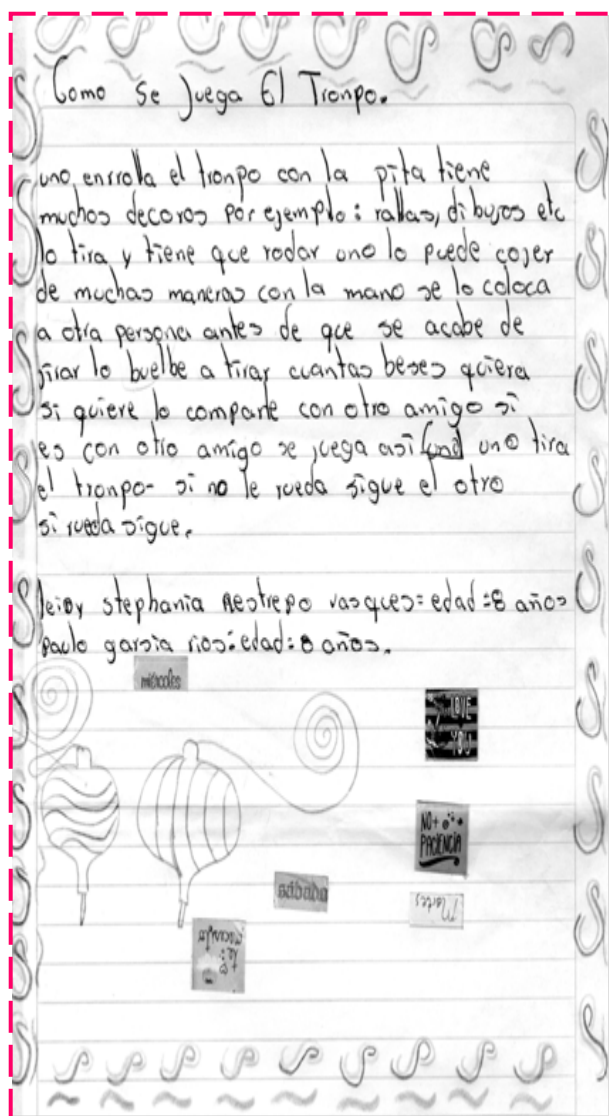 Como Se Juega El Tronpo.
uno enrrolla el tronpo con la pita tiene
muchos decoros por ejemplo: rallas, dibujos etc
lo tira y tiene que rodar uno lo puede cojer
de muchas maneras con la mano se lo coloca
a otra persona antes de que se acabe de
jirar lo buelbe a tirar cuantas beses quiera
si quiere lo comparte con otro amigo si
es con otro amigo se juega asi uno tira
el tronpo- si no le rueda sigue el otro
si rueda sigue.
leidy stephania Restrepo vasques=edad=8 años
paulo garsia rios=edad=8 años.
miércoles
LOVE
YOU
NO+
PACIENCIA
sábados
Martes